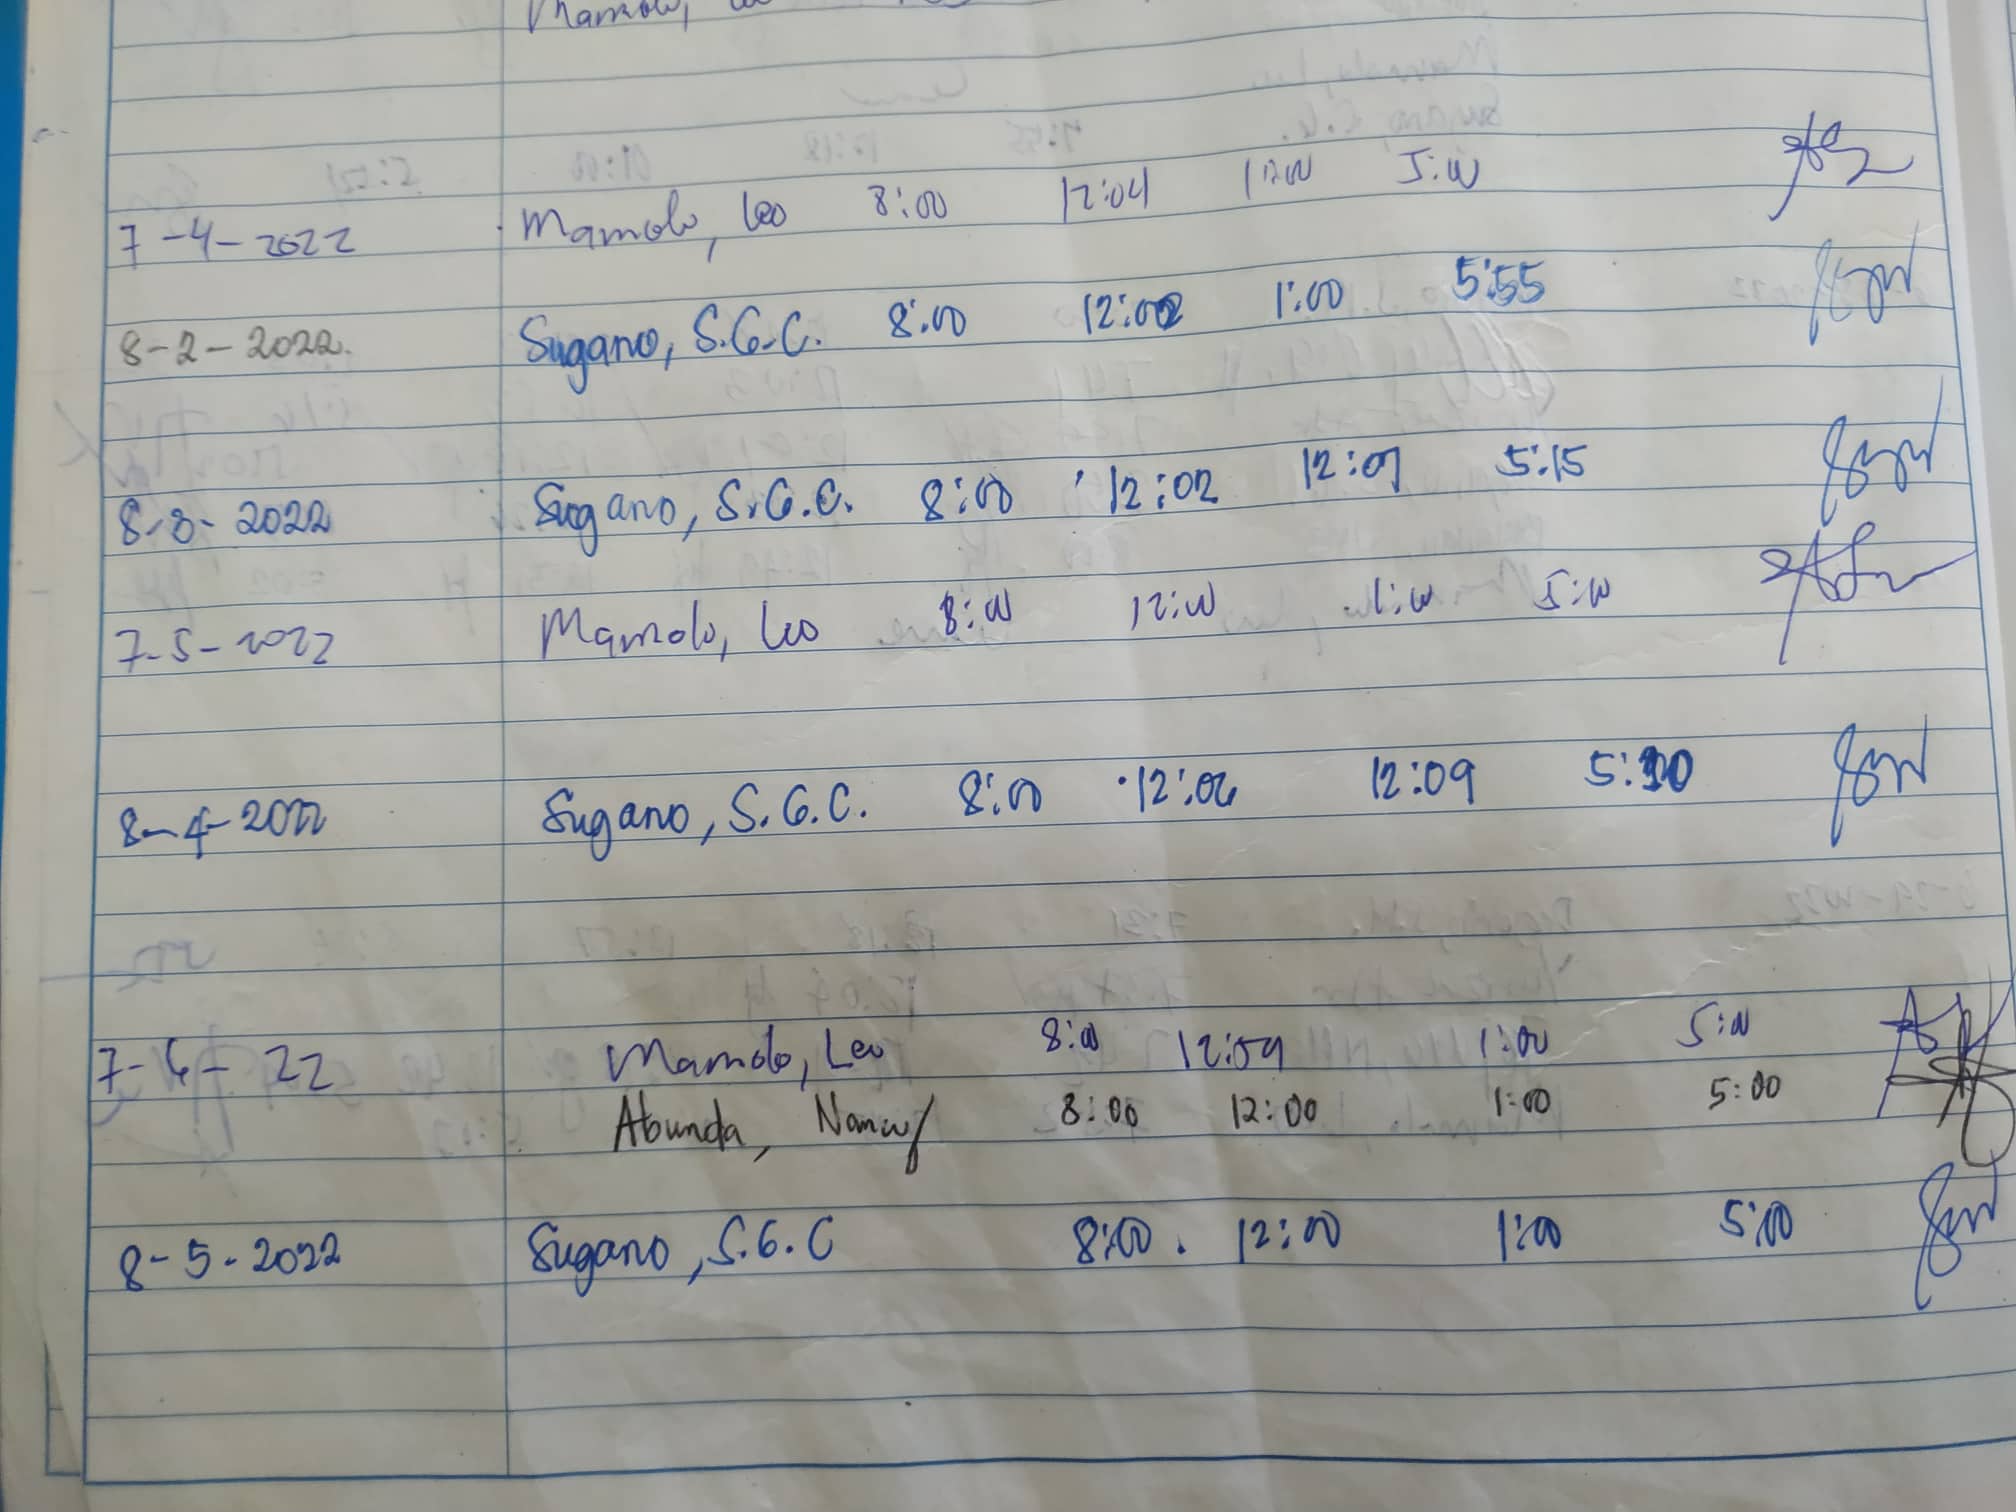 Mamolo,
7-4-2022 Mamolo, Leo 8:00 12:04 1:00 5:00
8-2-2022. Sugano, S.G.C. 8:00 12:02 1:00 5:55
8-3-2022 Sugano, S.G.C. 8:00 12:02 12:07 5:15
7-5-2022 Mamolo, Leo 8:00 12:00 1:00 5:00
8-4-2022 Sugano, S.G.C. 8:00 12:06 12:09
7-6-22 Mamolo, Leo 8:00 12:09 1:00 5:00
Abunda, Nancy 8:00 12:00 1:00 5:00
8-5-2022 Sugano, S.G.C 8:00. 12:00 1:00 5:00